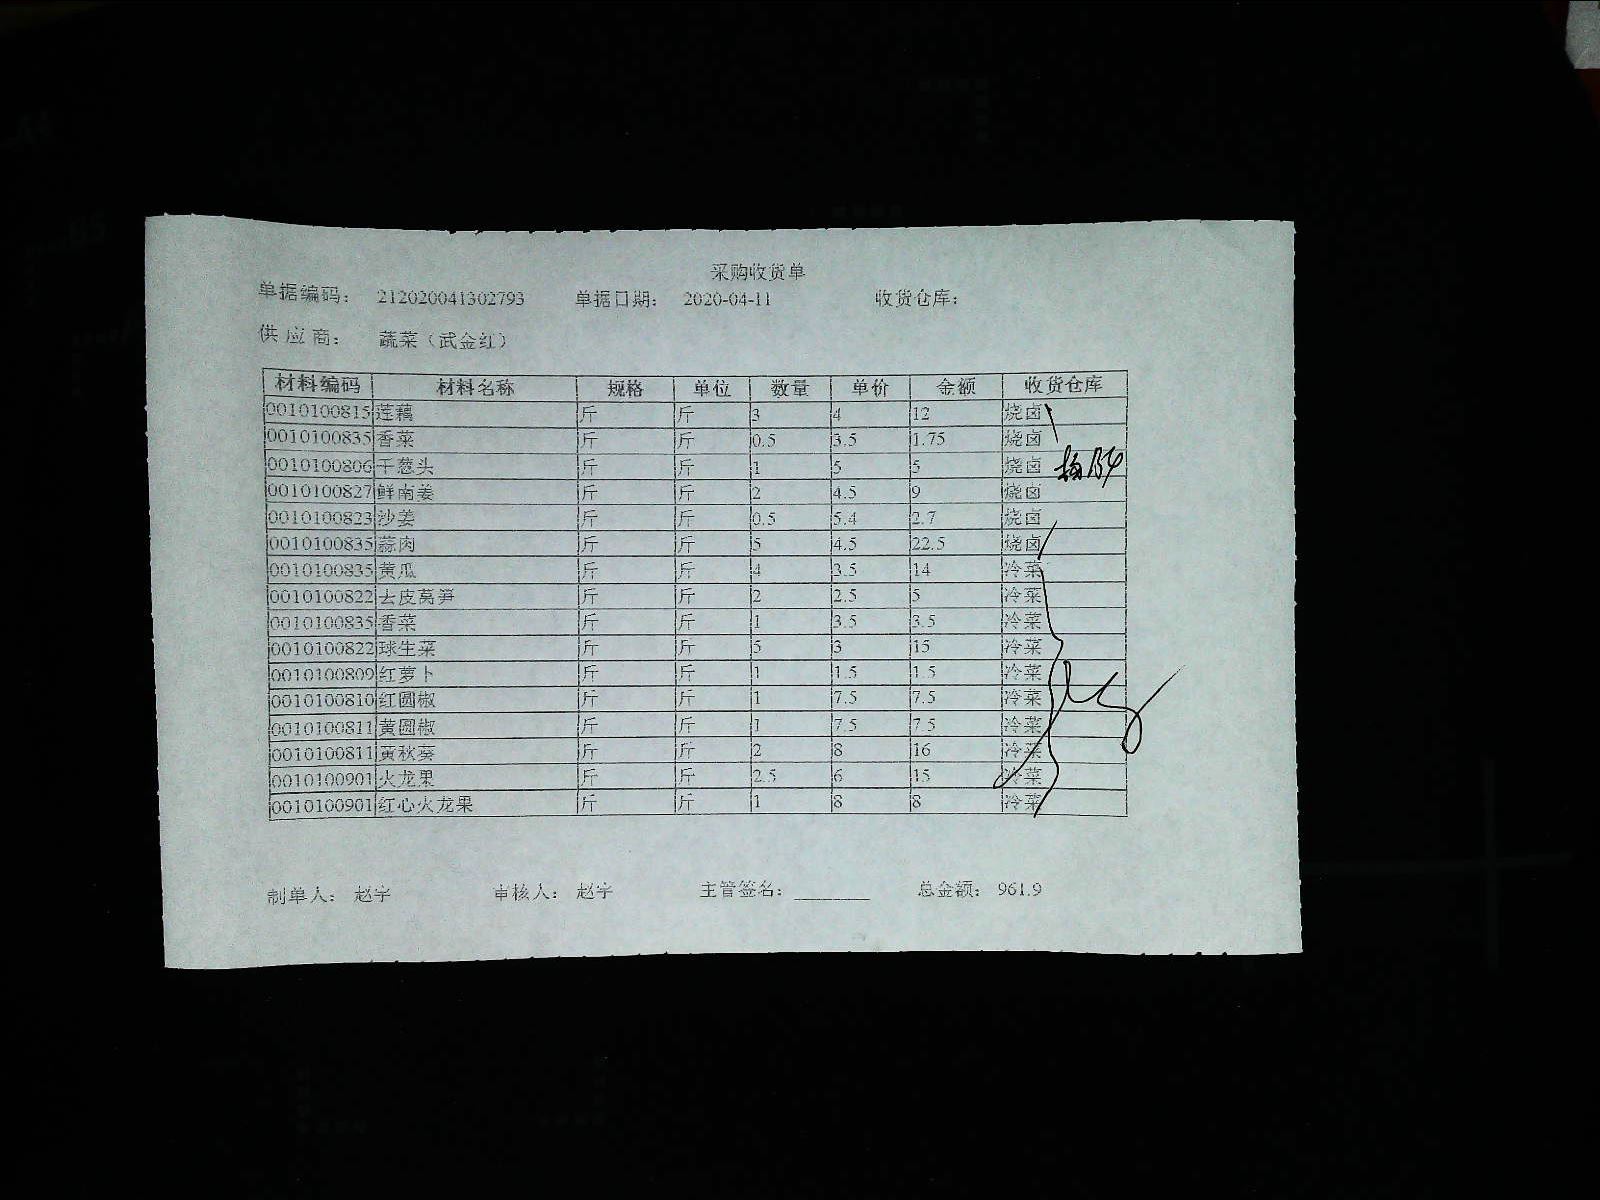 采购收货单
单据编码： 212020041302793 单据日期： 2020-04-11 收货仓库：
供 应 商： 蔬菜（武金红）
材料编码 材料名称 规格 单位 数量 单价 金额 收货仓库
0010100815 莲藕 斤 斤 3 4 12 烧卤
0010100835 香菜 斤 斤 0.5 3.5 1.75 烧卤
0010100806 干葱头 斤 斤 1 5 5 烧卤
0010100827 鲜南姜 斤 斤 2 4.5 9 烧卤
0010100823 沙姜 斤 斤 0.5 5.4 2.7 烧卤
0010100835 蒜肉 斤 斤 5 4.5 22.5 烧卤
0010100835 黄瓜 斤 斤 4 3.5 14 冷菜
0010100822 去皮莴笋 斤 斤 2 2.5 5 冷菜
0010100835 香菜 斤 斤 1 3.5 3.5 冷菜
0010100822 球生菜 斤 斤 5 3 15 冷菜
0010100809 红萝卜 斤 斤 1 1.5 1.5 冷菜
0010100810 红圆椒 斤 斤 1 7.5 7.5 冷菜
0010100811 黄圆椒 斤 斤 1 7.5 7.5 冷菜
0010100811 黄秋葵 斤 斤 2 8 16 冷菜
0010100901 火龙果 斤 斤 2.5 6 15 冷菜
0010100901 红心火龙果 斤 斤 1 8 8 冷菜
制单人： 赵宇 审核人： 赵宇 主管签名： 总金额： 961.9